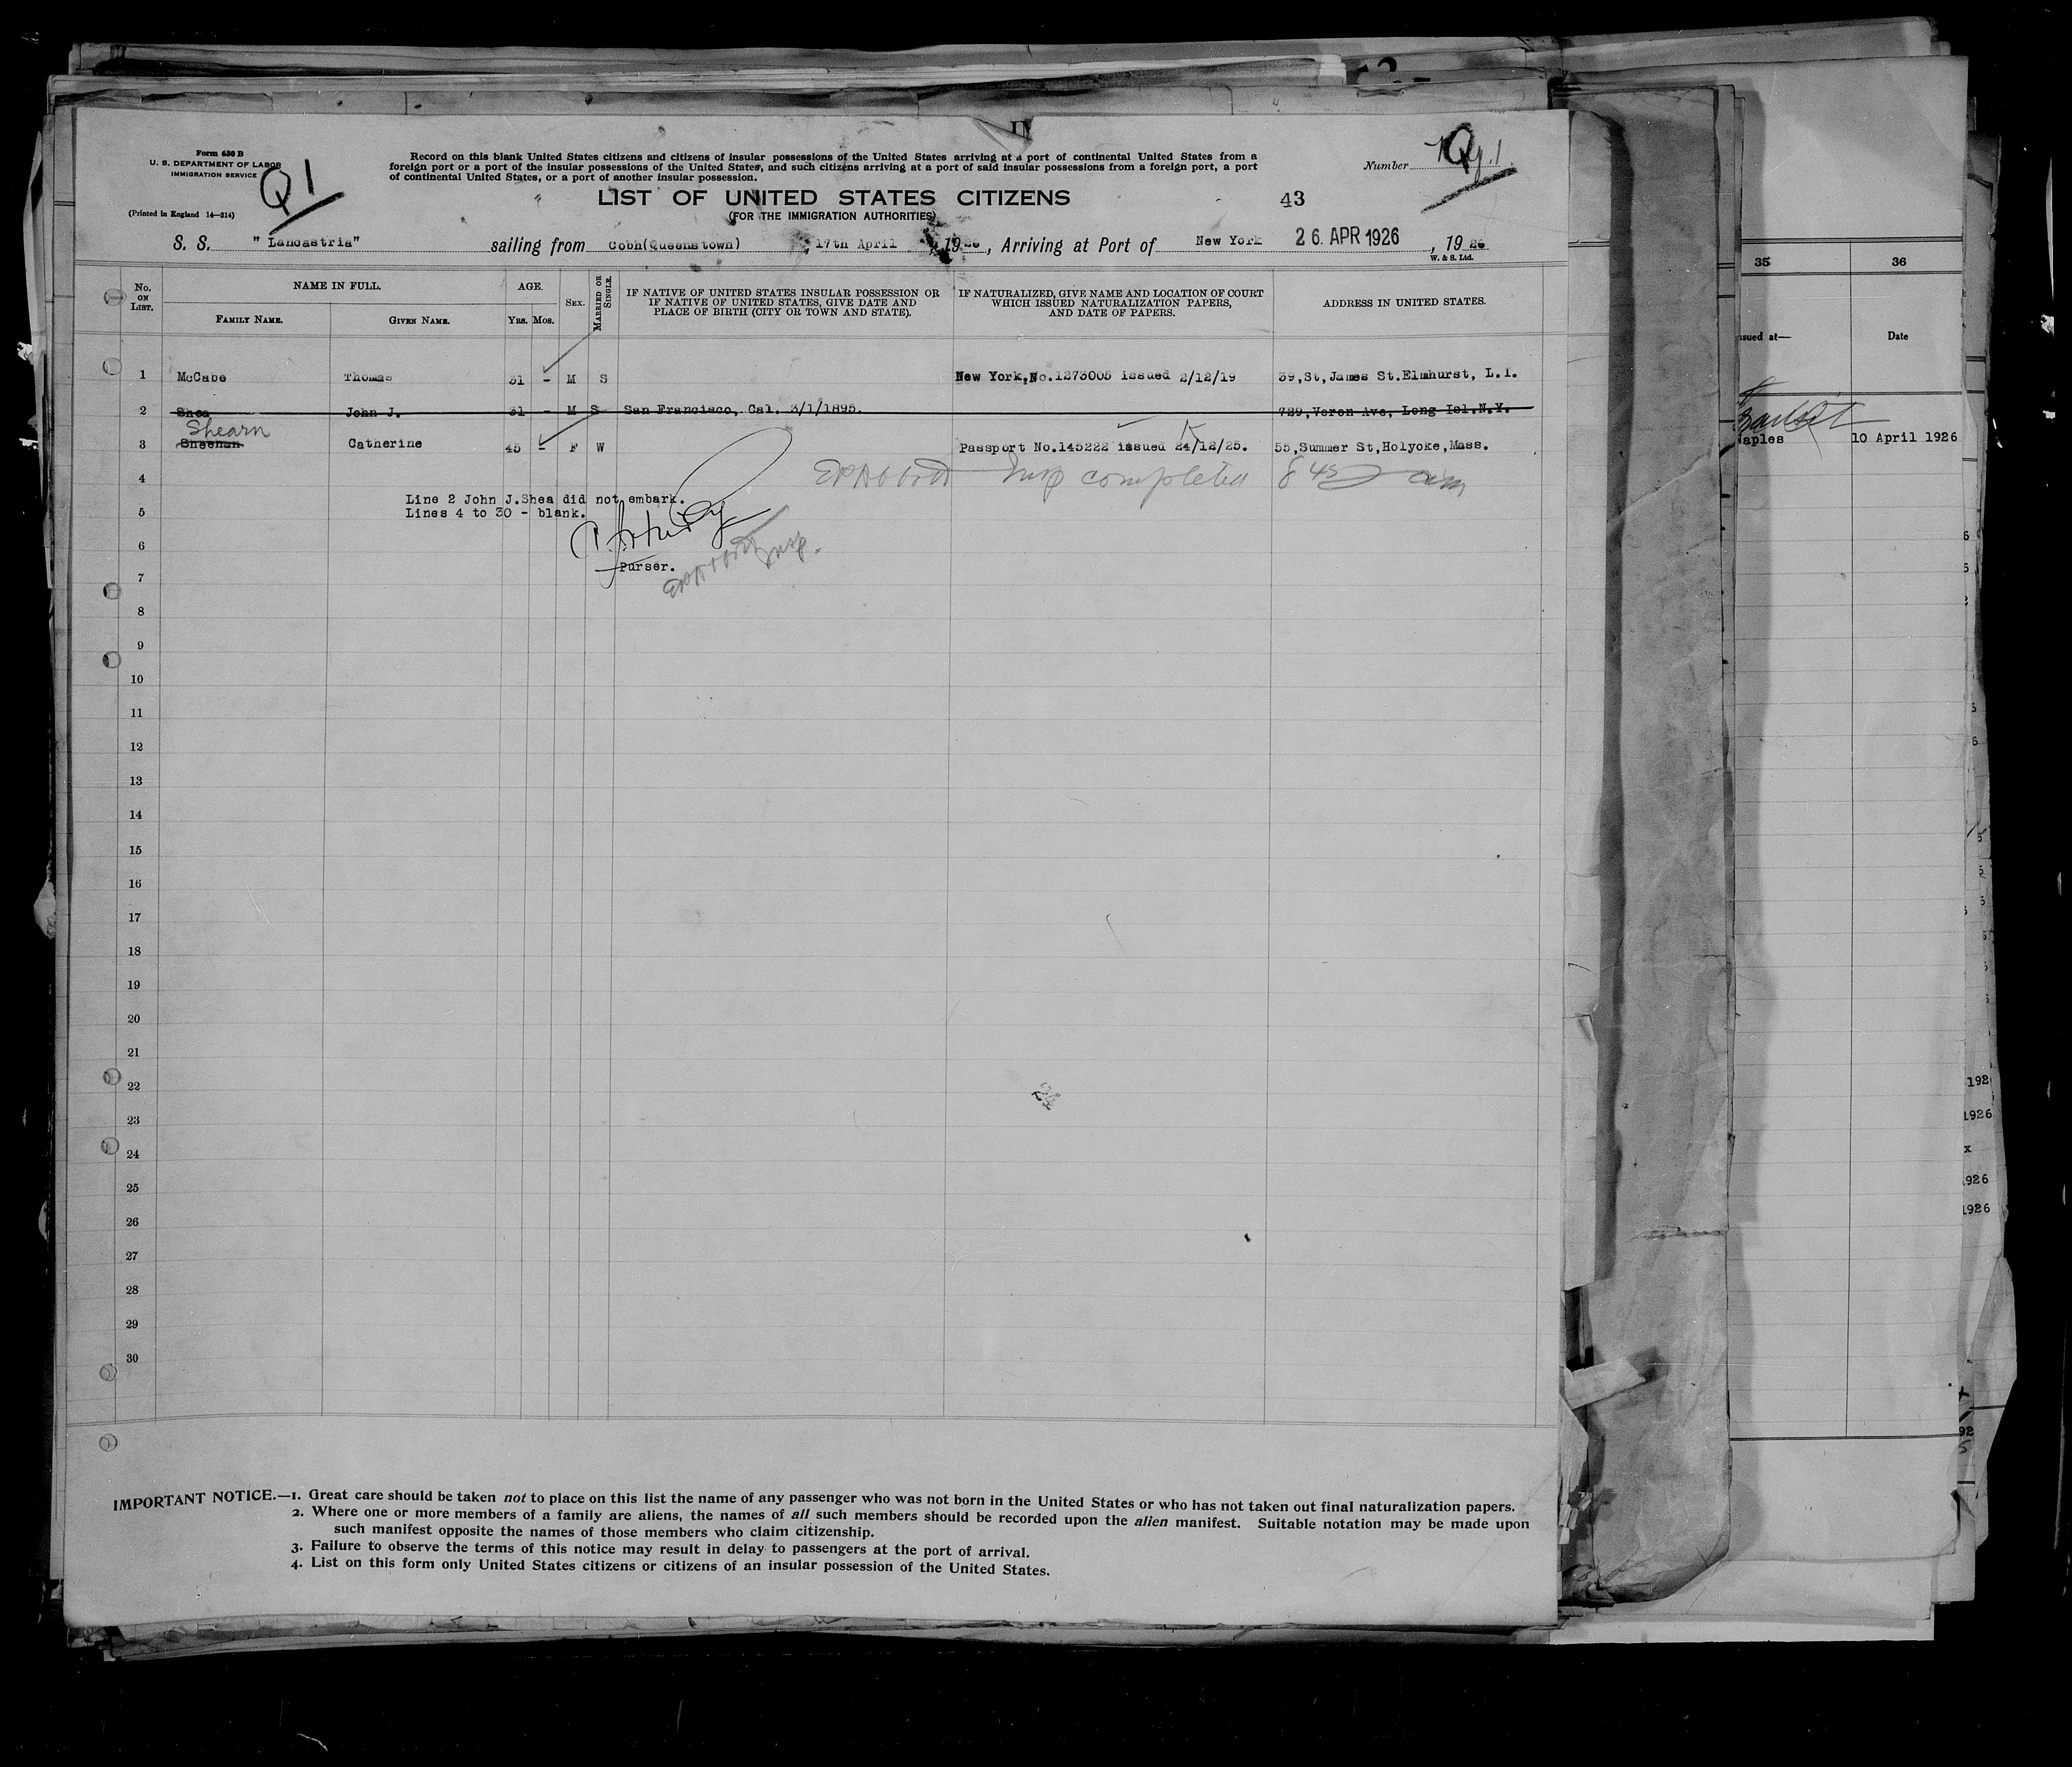 Form 630 B
U. S. DEPARTMENT OF LABOR
IMMIGRATION SERVICE
(Printed in England 14—214)
Q1
Record on this blank United States citizens and citizens of insular possessions of the United States arriving at a port of continental United States from a
foreign port or a port of the insular possessions of the United States, and such citizens arriving at a port of said insular possessions from a foreign port, a port
of continental United States, or a port of another insular possession.
Number
LIST OF UNITED STATES CITIZENS
43
(FOR THE IMMIGRATION AUTHORITIES)
S. S. "Lancastria" sailing from Cobh(Queenstown), 17th April, 1926, Arriving at Port of New York 26 APR 1926, 1926
W. & S. Ltd.
No. ON LIST.
NAME IN FULL.
FAMILY NAME.
GIVEN NAME.
AGE.
YRS. MOS.
SEX.
MARRIED OR SINGLE.
IF NATIVE OF UNITED STATES INSULAR POSSESSION OR
IF NATIVE OF UNITED STATES, GIVE DATE AND
PLACE OF BIRTH (CITY OR TOWN AND STATE).
IF NATURALIZED, GIVE NAME AND LOCATION OF COURT
WHICH ISSUED NATURALIZATION PAPERS,
AND DATE OF PAPERS.
ADDRESS IN UNITED STATES.
1 McCabe Thomas 31 - M S New York,No.1273005 issued 2/12/19 39,St,James St.Elmhurst, L.I.
2 Shea John J. 31 - M S San Francisco, Cal. 3/1/1895. 729,Veron Ave, Long Isl.N.Y.
Shearn
3 Sheehan Catherine 45 - F W Passport No.145222 issued 24/12/25. 55,Summer St,Holyoke,Mass.
4 Insp completed 8 45 am
Line 2 John J.Shea did not embark.
5 Lines 4 to 30 - blank.
6
Purser.
Insp.
7
8
9
10
11
12
13
14
15
16
17
18
19
20
21
22
23
24
25
26
27
28
29
30
IMPORTANT NOTICE.—1. Great care should be taken not to place on this list the name of any passenger who was not born in the United States or who has not taken out final naturalization papers.
2. Where one or more members of a family are aliens, the names of all such members should be recorded upon the alien manifest. Suitable notation may be made upon
such manifest opposite the names of those members who claim citizenship.
3. Failure to observe the terms of this notice may result in delay to passengers at the port of arrival.
4. List on this form only United States citizens or citizens of an insular possession of the United States.
35 36
ssued at— Date
Naples 10 April 1926
192
1926
x
1926
1926
92